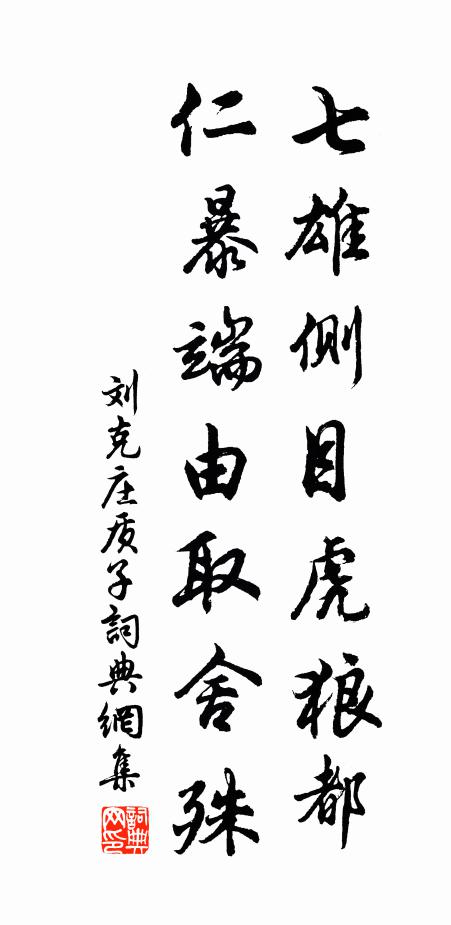 七雄侧目虎狼都
仁暴端由取舍殊
刘克庄质子詞典網集
詞典網印